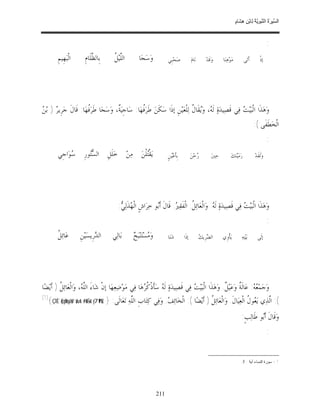 السِّيرَةُ النَّبَوِيَّةُ لِابْنِ هِشَامٍ
إذْ أَتَى مَوْهِنًا وَقَدْ نَامَ صَحْبِي وَسَجَا اللَّيْلُ بِالظَّلَامِ الْبَهِيمِ
وَهَذَا الْبَيْتُ فِي قَصِيدَةٍ لَهُ، وَيُقَالُ لِلْعَيْنِ إذَا سَكَنَ طَرْفُهَا: سَاجِيَةٌ، وَسَجَا طَرْفُهَا. قَالَ جَرِيرُ ( بْنُ
الْخَطَفَى ) :
وَلَقَدْ رَمَيْنَكَ حِينَ رُحْنَ بِأَعْيُنٍ يَقْتُلْنَ مِنْ خَلَلِ السُّتُورِ سَوَاجِي
وَهَذَا الْبَيْتُ فِي قَصِيدَةٍ لَهُ. وَالْعَائِلُ: الْفَقِيرُ. قَالَ أَبُو خِرَاشٍ الْهُذَلِيُّ:
إلَى بَيْتِهِ يَأْوِي الضَّرِيكُ إذَا شَتَا وَمُسْتَنْبِحٌ بَالِي الدَّرِيسَيْنِ عَائِلُ
وَجَمْعُهُ: عَالَةٌ وَعَيْلٌ. وَهَذَا الْبَيْتُ فِي قَصِيدَةٍ لَهُ سَأَذْكُرُهَا فِي مَوْضِعِهَا إنْ شَاءَ اللَّهُ، وَالْعَائِلُ ( أَيْضًا
) : الَّذِي يَعُولُ الْعِيَالَ. وَالْعَائِلُ ( أَيْضًا ) : الْخَائِفُ. وَفِي كِتَابِ اللَّهِ تَعَالَى:
وَقَالَ أَبُو طَالِبٍ:
211